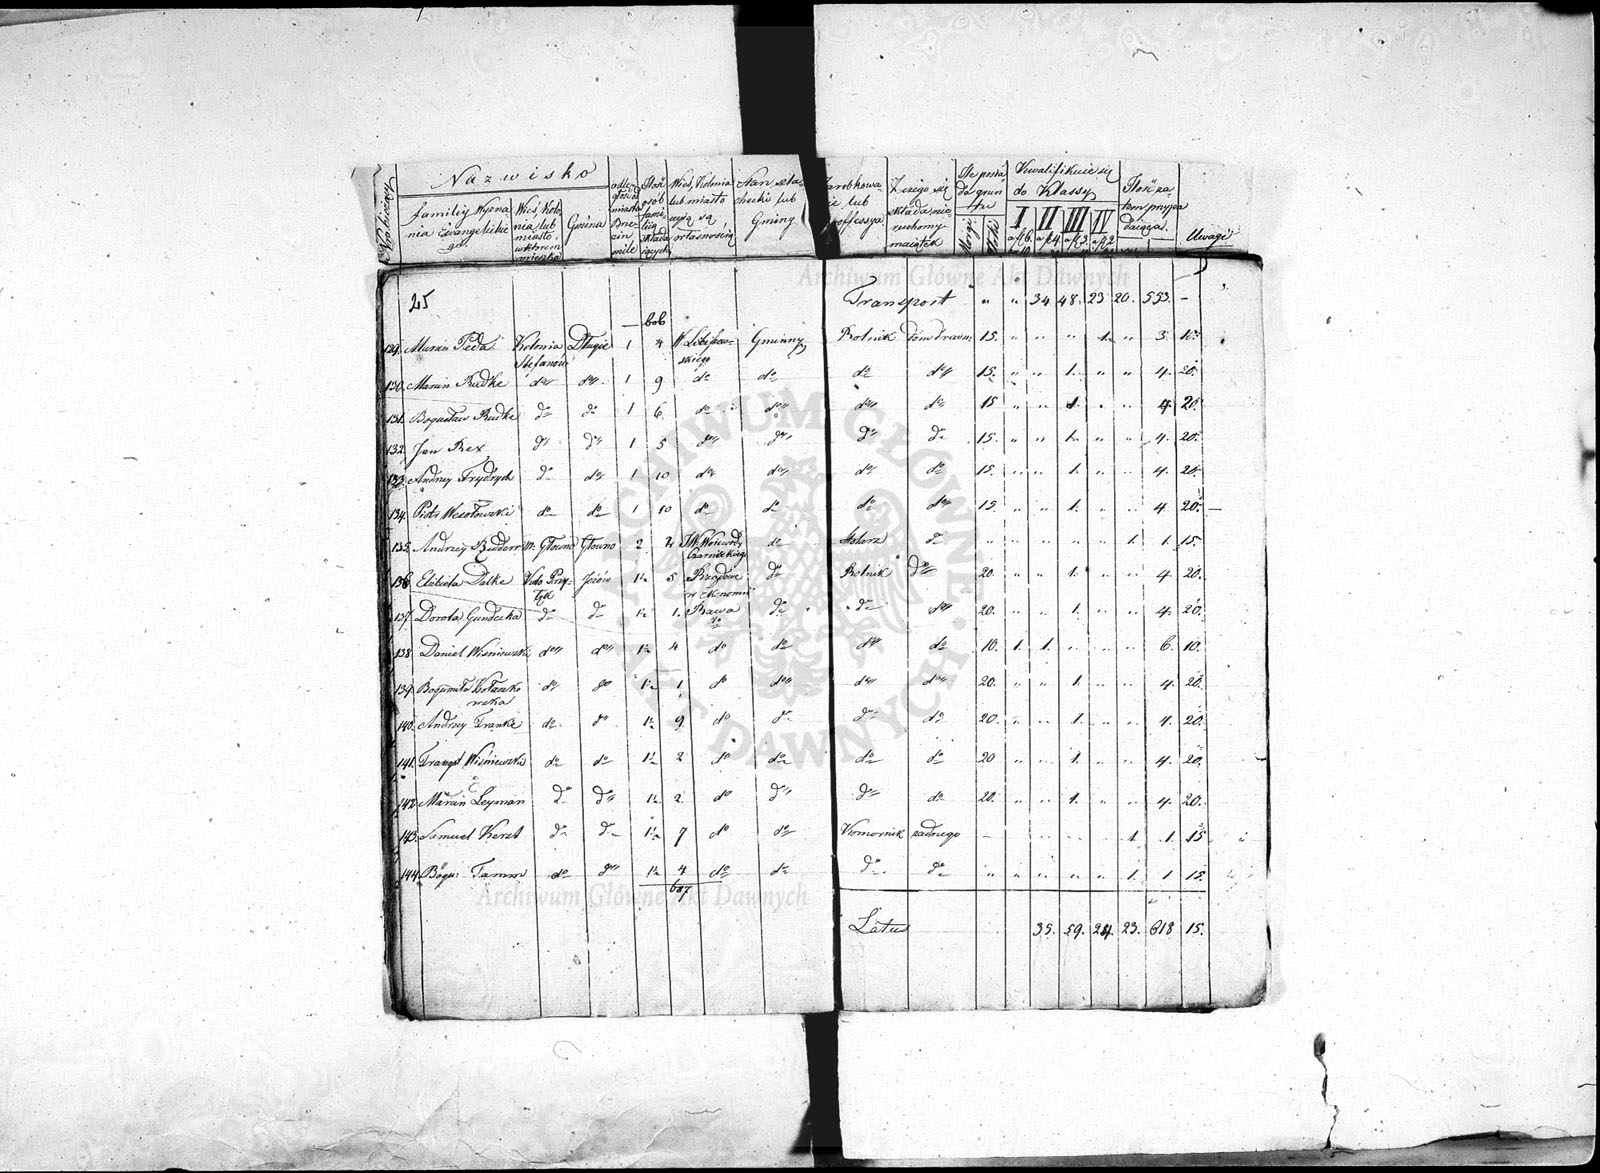 Nazwisko
familiy Wyznania Ewangelickiego
Wieś, Kolonia lub miasto, w którem mieszka
Gmina
odległość od miasta Brzezin mile
Ilość osób familią składających
Wieś, Kolonia lub miasto czyją są własnością
Stan szlachecki lub Gminny
Zarobkowanie lub Proffessya
Z czego się składa nieruchomy maiątek
Ile posiada gruntu
Morgi
Kwalifikuie się do Klassy
I II III IV
Ilość zatem przypadaiąca
Uwagi
Archiwum Główne Akt Dawnych
25
Transport " " 34 48. 23 20. 553. -
606
129. Marcin Kolonia Stefanów Długie 1 4 Gminny Rolnik 15. " " " 1. " 3. 10.
130. Marcin Radke do do 1 9 do do do do 15. " " 1. " " 4. 20.
131. Bogusław Radke do do 1 6. do do do do 15 " " 1. " " 4. 20.
132. Jan Rex do do 1 5 do do do do 15. " " 1. " " 4. 20.
133. Andrzy Frydrych do do 1 10 do do do do 15. " " 1. " " 4. 20.
134. Piotr Wesołowski do do 1 10 do do do do 15. " " 1. " " 4. 20. -
135. Andrzey M. Głowno Głowno 2 JW. Woiewody Czarneckiego do Stolarz do " " " " " 1. 1. 15.
136 Elżbieta Dalke 1½ 5 Rządowa w Ekonomii Rawa do Rolnik do 20. " " 1. " " 4. 20.
137. Dorota do do 1½ 1. do do do do 20. " " 1. " " 4. 20.
138 Daniel Wiśniewski do do 1½ 4 do do do do 10. 1. 1. " " " 6. 10.
139. Bogumiła do do 1½ 1 do do do do 20. " " 1. " " 4. 20.
140. Andrzy Franke do do 1½ 9 do do do do 20. " " 1. " " 4. 20.
141. Wiśniewski do do 1½ 2 do do do do 20 " " 1. " " 4. 20.
142. Marcin Leyman do do 1½ 2. do do do do 20. " " 1. " " 4. 20.
143. Samuel Kerst do do 1½ 7 do do Komornik żadnego - " " " " 1. 1. 15
144. Bogu: Tamm do do 1½ 4 do do do do " " " " " 1. 1 15.
687
Archiwum Główne Akt Dawnych
Latus 35. 59. 24. 23. 618 15.
ARCHIWUM GŁÓWNE AKT DAWNYCH